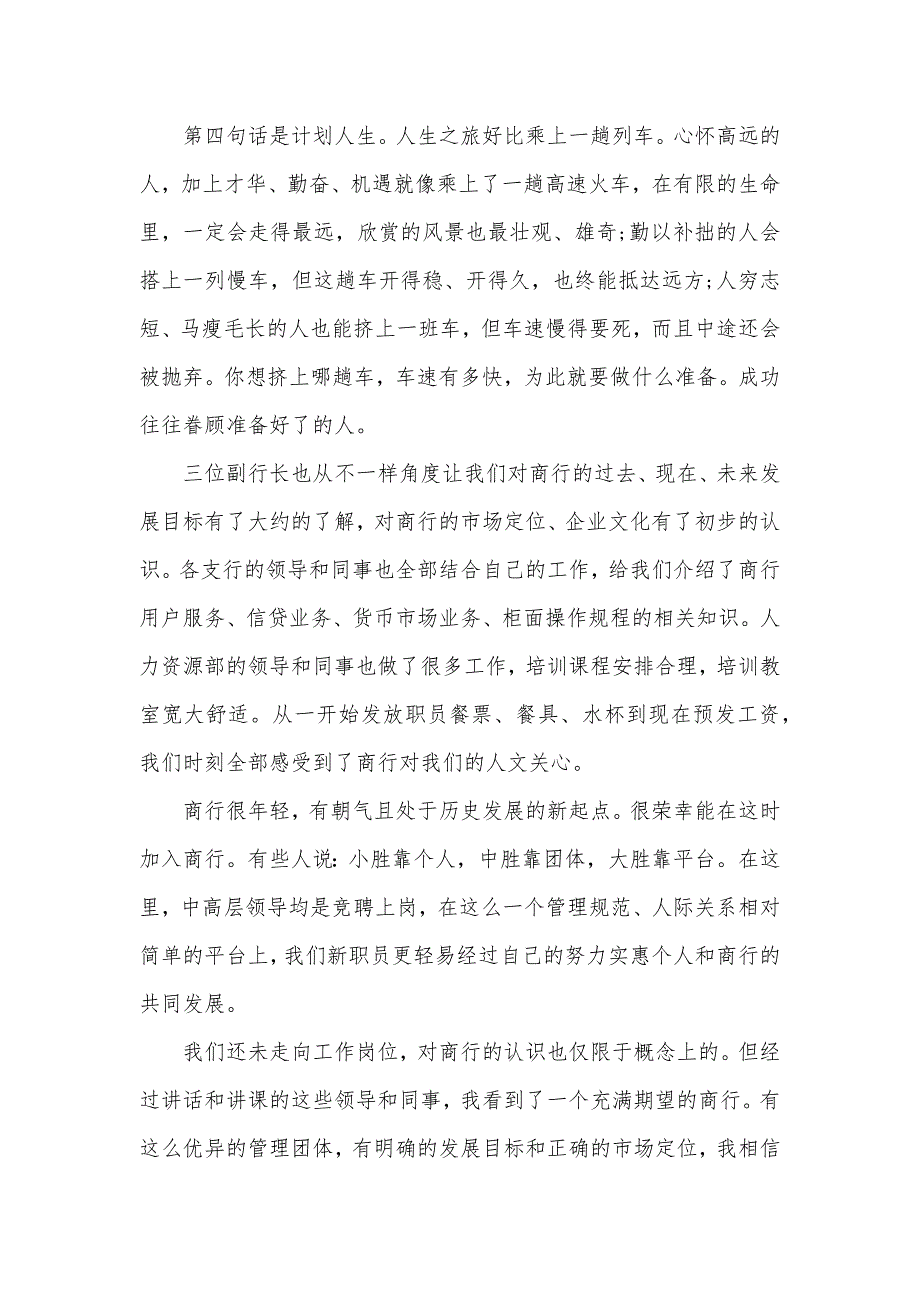 第四句话是计划人生。人生之旅好比乘上一趟列车。心怀高远的
人，加上才华、勤奋、机遇就像乘上了一趟高速火车，在有限的生命
里，一定会走得最远，欣赏的风景也最壮观、雄奇;勤以补拙的人会
搭上一列慢车，但这趟车开得稳、开得久，也终能抵达远方;人穷志
短、马瘦毛长的人也能挤上一班车，但车速慢得要死，而且中途还会
被抛弃。你想挤上哪趟车，车速有多快，为此就要做什么准备。成功
往往眷顾准备好了的人。
三位副行长也从不一样角度让我们对商行的过去、现在、未来发
展目标有了大约的了解，对商行的市场定位、企业文化有了初步的认
识。各支行的领导和同事也全部结合自己的工作，给我们介绍了商行
用户服务、信贷业务、货币市场业务、柜面操作规程的相关知识。人
力资源部的领导和同事也做了很多工作，培训课程安排合理，培训教
室宽大舒适。从一开始发放职员餐票、餐具、水杯到现在预发工资，
我们时刻全部感受到了商行对我们的人文关心。
商行很年轻，有朝气且处于历史发展的新起点。很荣幸能在这时
加入商行。有些人说：小胜靠个人，中胜靠团体，大胜靠平台。在这
里，中高层领导均是竞聘上岗，在这么一个管理规范、人际关系相对
简单的平台上，我们新职员更轻易经过自己的努力实惠个人和商行的
共同发展。
我们还未走向工作岗位，对商行的认识也仅限于概念上的。但经
过讲话和讲课的这些领导和同事，我看到了一个充满期望的商行。有
这么优异的管理团体，有明确的发展目标和正确的市场定位，我相信